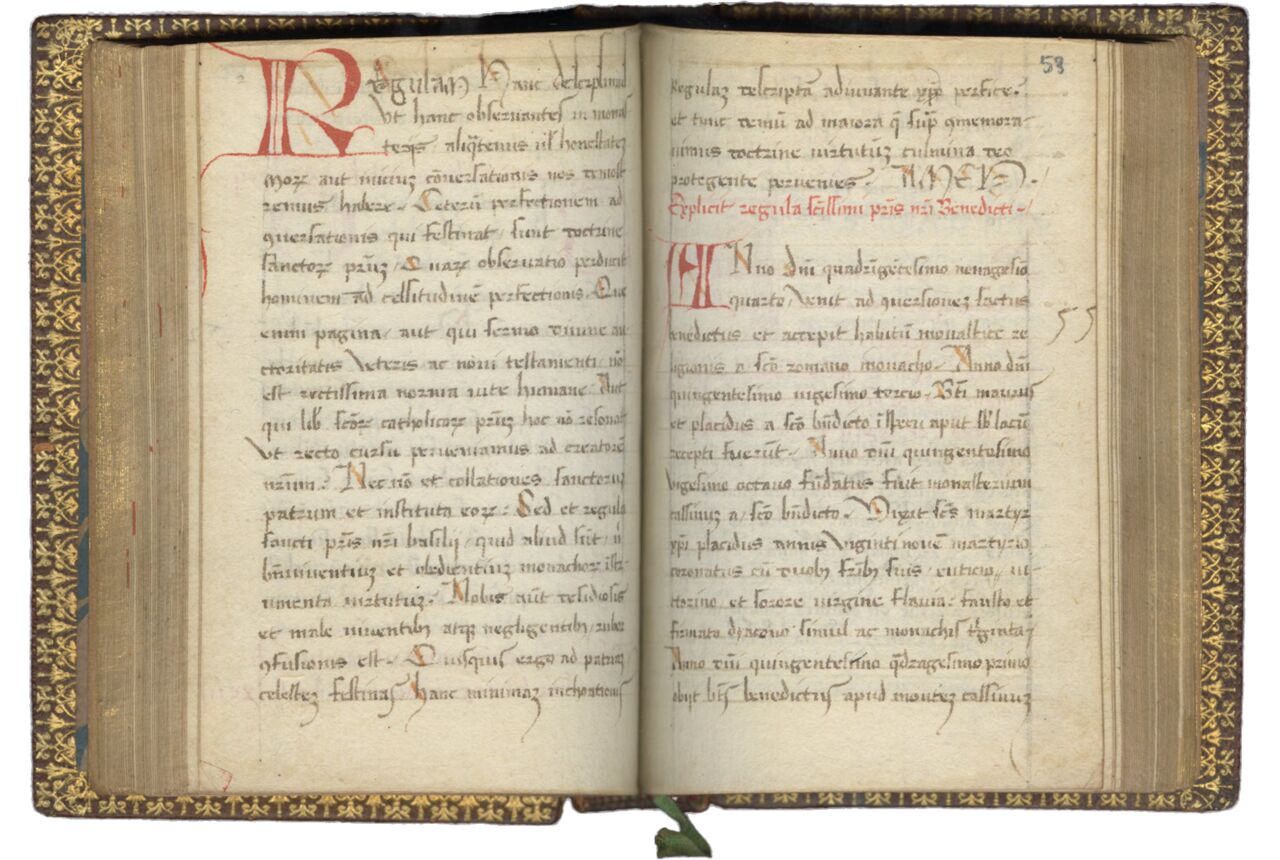 Regulam hanc descripsimus
Vt hanc obseruantes in monas
terijs aliq̃tenus ul' honestatez
morꝝ aut iniciuz cõuersationis nos demõst
remus habere. Ceterũ perfectionem ad
ꝯuersationis qui festinat, sunt doctrine
sanctorꝝ prũz, Quarꝝ obseruatio perducit
hominem ad celsitudinẽ perfectionis. Que
enim pagina, aut qui sermo diuine au
ctoritatis Veteris ac noui testamenti, nõ
est rectissima norma uite humane. Aut
qui lib' scõrꝝ catholicorꝝ prũz hoc nõ resonat
Vt recto cursu perueniamus ad creatorẽ
nrũm. Nec nõ et collationes sanctoruz
patrum et instituta eorꝝ. Sed et regula
sancti pr̃is nr̃i basilij, quid aliud sũt, ñ
bñuiuentiuz et obedientiuz monachorꝝ istr̃
umenta uirtutuz. Nobis aũt desidiosis
et male uiuentibꝫ atqꝫ negligentibꝫ, rubor
ꝯfusionis est. Quisquis ergo ad patriaz
celestez festinas, hanc minimaz inchoationis
58
Regulaz descriptã adiuuante xp̃o perfice.
et tunc demũ ad maiora q̃ sup̃ ꝯmemora
uimus doctrine uirtutũz culmina deo
protegente peruenies. AMEN.
Explicit regula sc̃issimi pr̃is nr̃i Benedicti.
Anno dñi quadrĩgẽtesimo nonagesiõ
quarto, Venit ad ꝯuersionez sc̃tus
benedictus et accepit habitũ monastice re
55
ligionis a sc̃o romano monacho. Anno dñi
quingentesimo uigesimo tercio. Bt̃i maurus
et placidus a sc̃o bñdicto aput sb' lacũ
recepti fuerũt. Anno dñi quingentesimo
Vigesimo octauo fũdatus fuit monasterium
cassinuz a sc̃o bñdicto. Vixit sc̃s martyr
xp̃i placidus annis Viginti nouẽ martyrio
coronatus cũ duobꝫ fr̃ibꝫ suis, euticio, ui
ctorino, et sorore uirgine flauia, fausto et
firmato dyacono simul ac monachis tr̃ginta.
Anno dñi quingentesimo q̃dragesimo primo
obijt bt̃s benedictus apud montez cassinuz